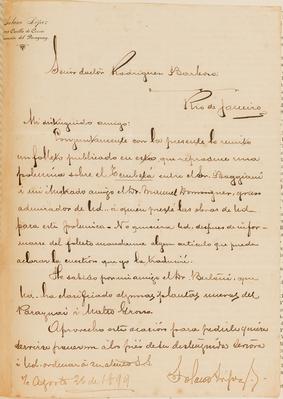 Solano López
Cuello de Cerro
Asunción del Paraguay
Señor doctor Rodriguez Barbosa
Rio de Janeiro
Mi distinguido amigo:
Conjuntamente con la presente le remito
un folleto publicado en esta que reproduce una
polemica sobre el entre el Sr. Boggiani
i mi ilustrado amigo el Dr. Manuel Dominguez, gran
admirador de Ud. á quien presté las obras de Ud.
para esta polemica. No quisiera Ud. despues de infor-
marse del folleto mandarme algun articulo que pueda
aclarar la cuestion que yo la traduciré.
He sabido por mi amigo el Dr. que
Ud. ha clasificado algunas plantas nuevas del
Paraguai i Matto Grosso.
Aprovecho esta ocasion para pedirle quiera
servirse ponerme á los piés de su distinguida señora
i Ud. ordenar á su atento S.S.
Agosto 26 de 1899